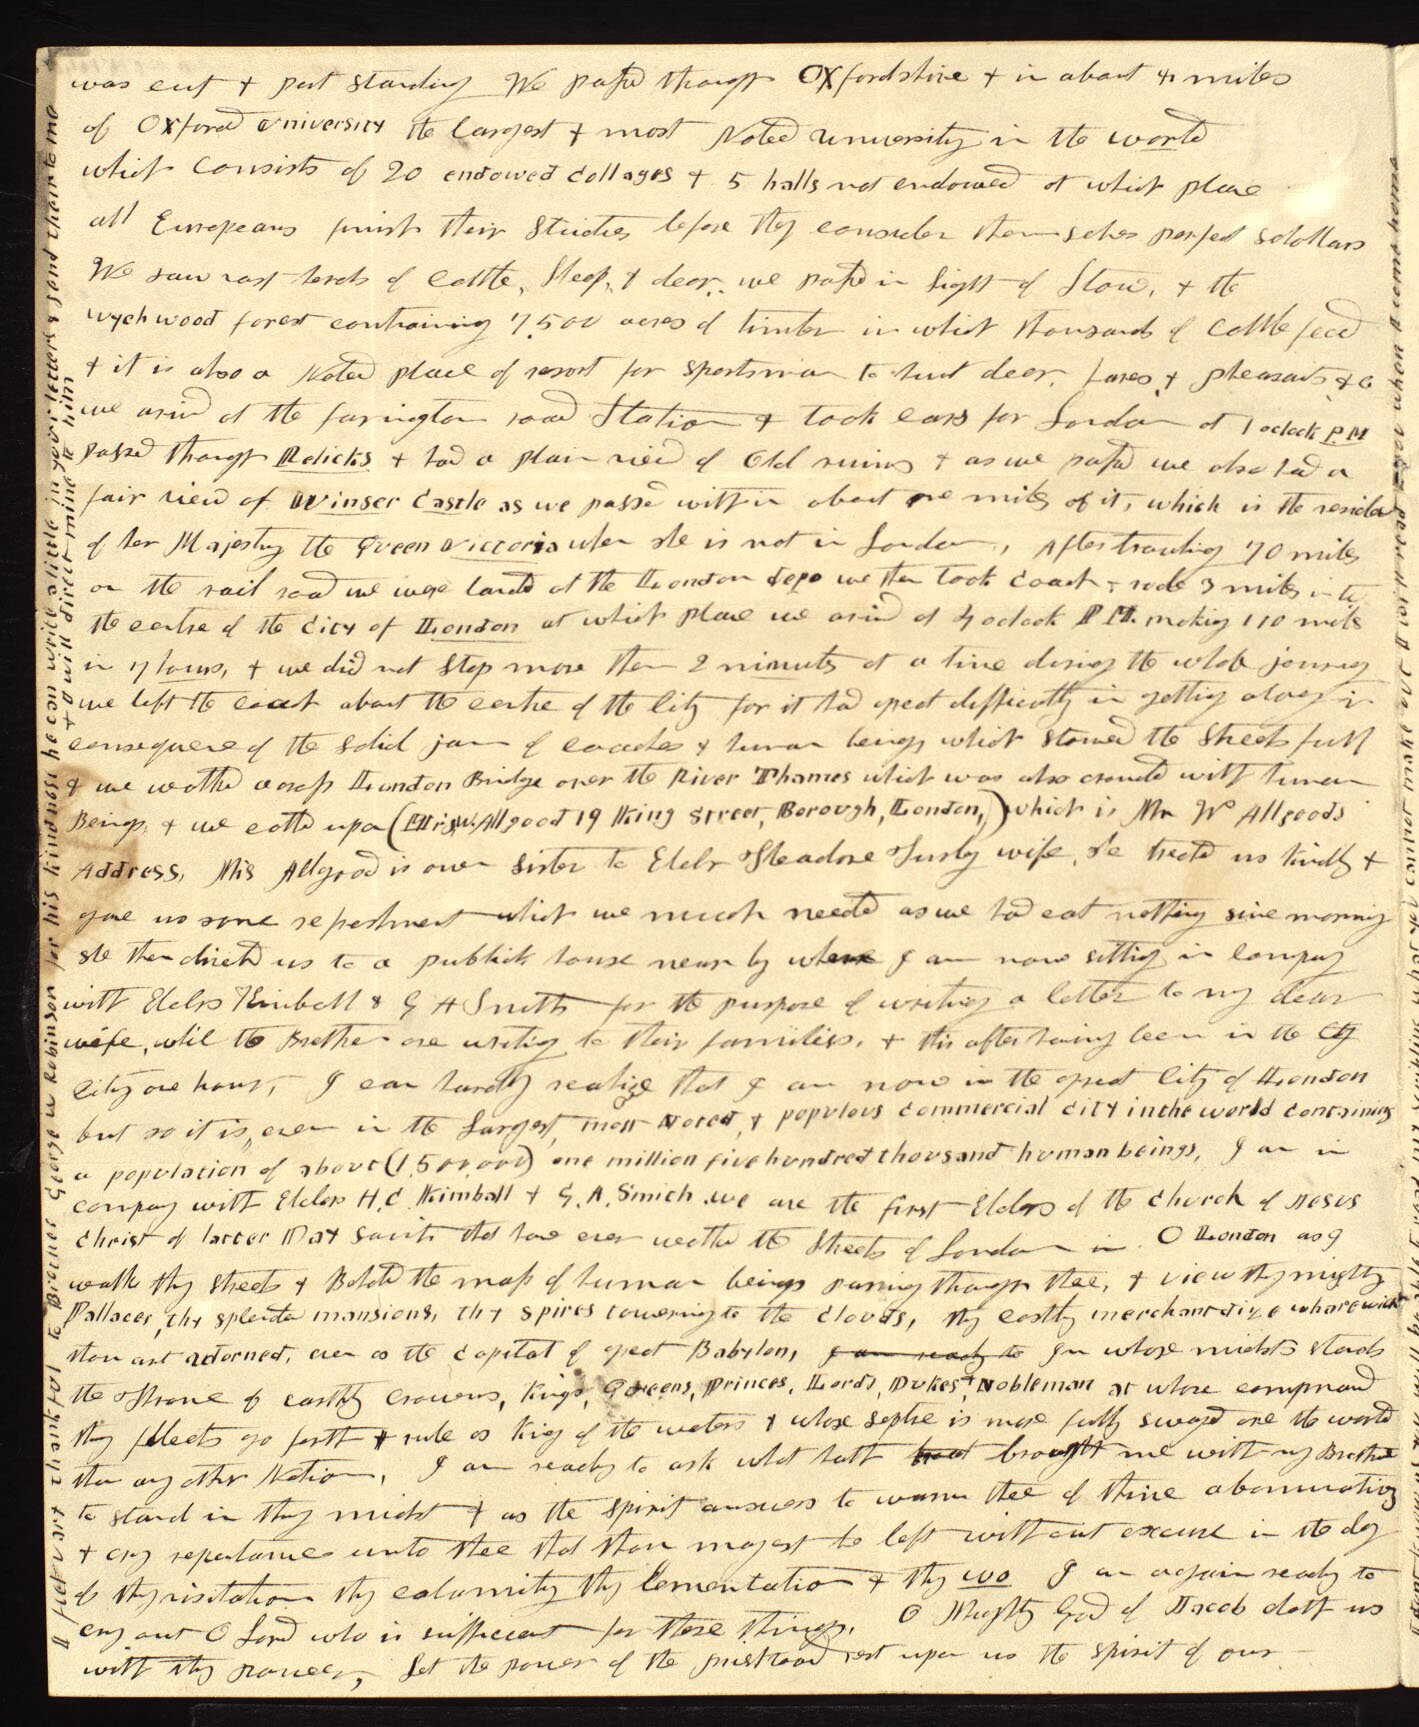 was cut & put standing We passd through Oxfordshire & in about 4 miles
of Oxford University the largest & most Noted University in the world
which Consists of 20 endowed Collages & 5 halls not endowed at which place
all Europeans finish their Studies before they consider themselves perfect scholars
We saw vast herds of Cattle, Sheep, & deer, we passd in sight of Stow, & the
wychwood forest containing 7,500 acres of timber in which thousands of Cattle feed
& it is also a Noted place of resort for sportsman to hunt deer, foxes, & pheasants &c
we arived at the farington road Station & took cars for London at 1 oclock P.M
passed through Relicks & had a plain view of Old ruins & as we passd we also had a
fair view of Winser Castle as we passed within about one mile of it, which is the residen
of her Majesty the Queen Victoria when she is not in London, After traveling 70 miles
on the rail road we were landed at the London depo we then took coach & rode 3 miles into
the centre of the City of London at which place we arived at 4 oclock P.M. making 110 miles
in 7 hours, & we did not Stop more than 2 minuts at a time during the whole journey
we left the coach about the centre of the City for it had great difficulty in getting along in
consequence of the solid jam of coaches & human beings which stowed the Streets full
& we walked across London Bridge over the River Thames which was also crowded with human
Beings, & we called upon (Mrs. W. Allgood 19 King Street, Borough, London,) which is Mr Wm Allgoods
Address, Mis Allgood is own Sister to Elder Theadore Turley wife, she treated us kindly &
gave us some refreshment which we much needed as we had eat nothing since morning
she then directed us to a publick house near by where I am now sitting in company
with Elders Kimball & G A Smith for the purpose of writing a letter to my dear
wife, while the Brethren are writing to their families, & this after having been in the City
City one hour, I can hardly realize that I am now in the great City of London
but so it is, even in the Largest, most Noted, & populous Commercial City in the world containing
a population of about (1,500,000) one million five hundred thousand human beings, I am in
company with Elders H. C. Kimball & G. A. Smith we are the first Elders of the Church of Jesus
Christ of Latter Day Saints that have ever walked the Streets of London in. O London as I
walk thy streets & Behold the mass of human beings passing through thee, & view thy mighty
Pallaces, thy splended mansions, thy spires towering to the Clouds, thy costly merchandize wharewith
thou art adorned, even as the Capital of great Babylon, I am ready to In whose midsts stands
the Throne of earthly Crowns, Kings, Queens, Princes, Lords, Dukes, & Nobleman at whose command
thy fleets go forth & rule as King of the waters & whose septre is more fully swayed over the world
than any other Nation, I am ready to ask what hath brought me with my Brethren
to stand in thy midst & as the spirit answers to warn thee of thine abominations
& cry repentance unto thee that thou mayest be left without excuse in the day
of thy visitation thy calamity thy lementation & thy wo I am again ready to
cry out O Lord who is sufficient for these things, O Mighty God of Jacob cloth us
with thy power, Let the power of the priesthood rest upon us the spirit of our
I feel very thankful to Brother George W Robinson for his kindness he can write a little in your letters & send them to me
& I will direct mine to him